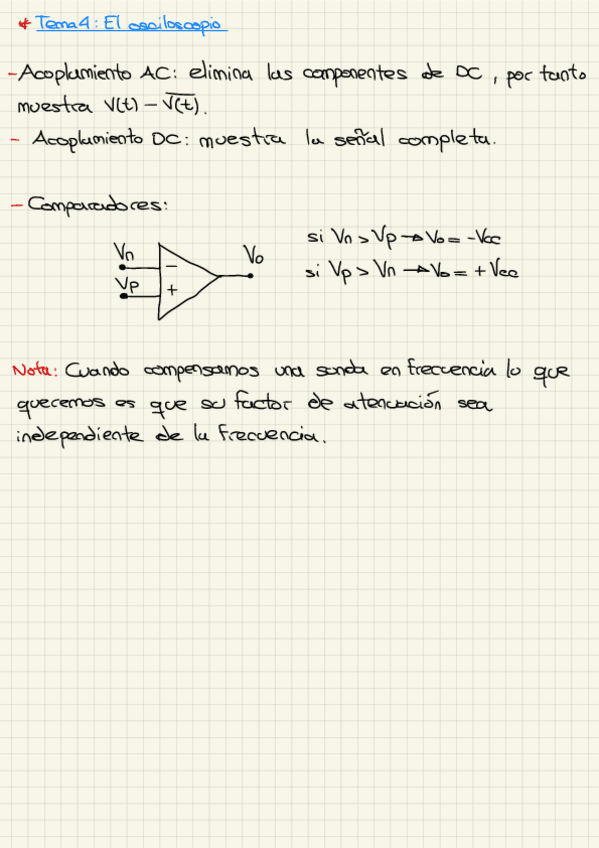 * Tema 4: El osciloscopio
- Acoplamiento AC: elimina las componentes de DC, por tanto
muestra V(t) - V̅(̅t̅)̅.
- Acoplamiento DC: muestra la señal completa.
- Comparadores:
si Vn > Vp → Vo = -Vcc
si Vp > Vn → Vo = +Vcc
Vn
Vp
Vo
-
+
Nota: Cuando compensamos una sonda en frecuencia lo que
queremos es que su factor de atenuación sea
independiente de la frecuencia.